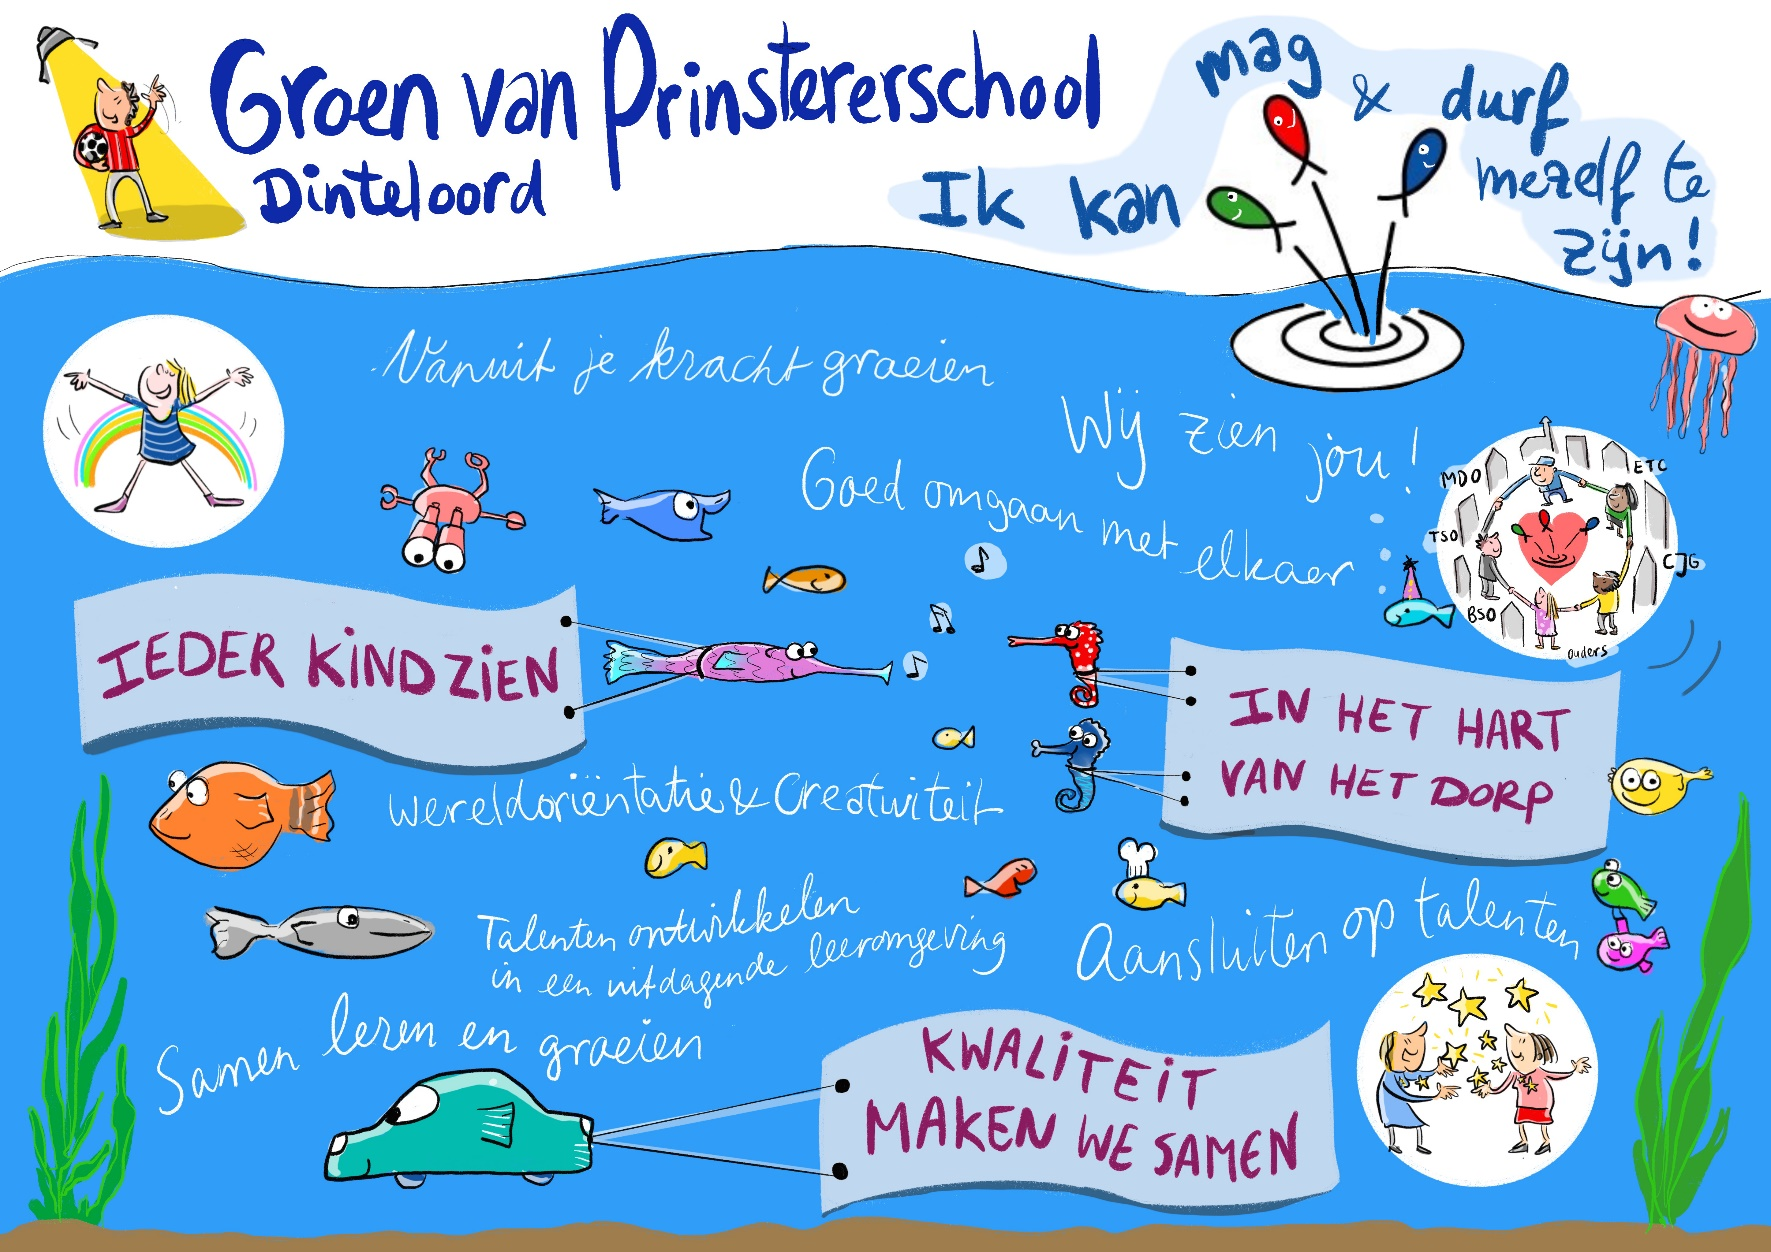 Groen van Prinstererschool
Dinteloord
Ik kan
mag
& durf
mezelf te
zijn!
Vanuit je kracht groeien
Wij zien jou!
Goed omgaan met elkaar
MDO
ETC
TSO
CJG
BSO
ouders
IEDER KIND ZIEN
IN HET HART
VAN HET DORP
Wereldoriëntatie & Creativiteit
Talenten ontwikkelen
in een uitdagende leeromgeving
Aansluiten op talenten
Samen leren en groeien
KWALITEIT
MAKEN WE SAMEN